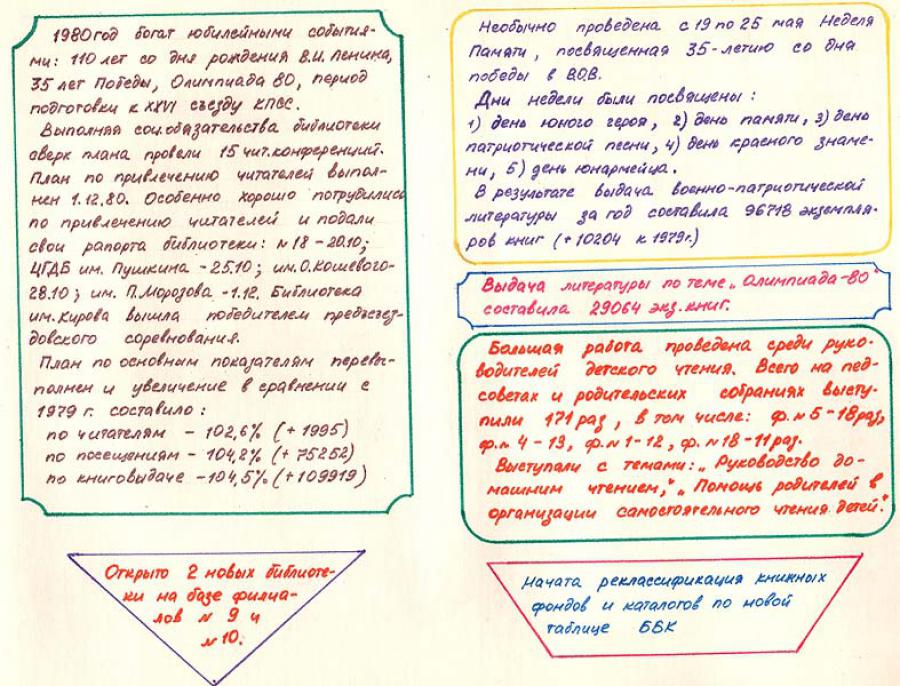 1980 год богат юбилейными события-
ми: 110 лет со дня рождения В.И. Ленина,
35 лет Победы, Олимпиада 80, период
подготовки к XXVI съезду КПСС.
Выполняя соц.обязательства библиотеки
сверх плана провели 15 чит.конференций.
План по привлечению читателей выпол-
нен 1.12.80. Особенно хорошо потрудились
по привлечению читателей и подали
свои рапорта библиотеки: №18 - 20.10;
ЦГДБ им. Пушкина - 25.10; им.О.Кошевого-
28.10; им. П.Морозова - 1.12. Библиотека
им.Кирова вышла победителем предсъез-
довского соревнования.
План по основным показателям перевы-
полнен и увеличение в сравнении с
1979 г. составило:
по читателям - 102,6% (+ 1995)
по посещениям - 104,2% (+ 75252)
по книговыдаче - 104,5% (+ 109919)
Открыто 2 новых библиоте-
ки на базе филиа-
лов № 9 и
№ 10.
Необычно проведена с 19 по 25 мая Неделя
Памяти, посвященная 35-летию со дна
победы в В.О.В.
Дни недели были посвящены:
1) день юного героя, 2) день памяти, 3) день
патриотической песни, 4) день красного знаме-
ни, 5) день юнармейца.
В результате выдача военно-патриотической
литературы за год составила 96718 экземпля-
ров книг (+ 10204 к 1979г.)
Выдача литературы по теме „Олимпиада-80"
составила 29064 экз. книг.
Большая работа проведена среди руко-
водителей детского чтения. Всего на пед-
советах и родительских собраниях высту-
пили 171 раз, в том числе: ф.№5-18раз,
ф.№ 4 - 13, ф.№1-12, ф.№18-11раз.
Выступали с темами: „Руководство до-
машним чтением," „Помощь родителей в
организации самостоятельного чтения детей."
Начата реклассификация книжных
фондов и каталогов по новой
таблице ББК